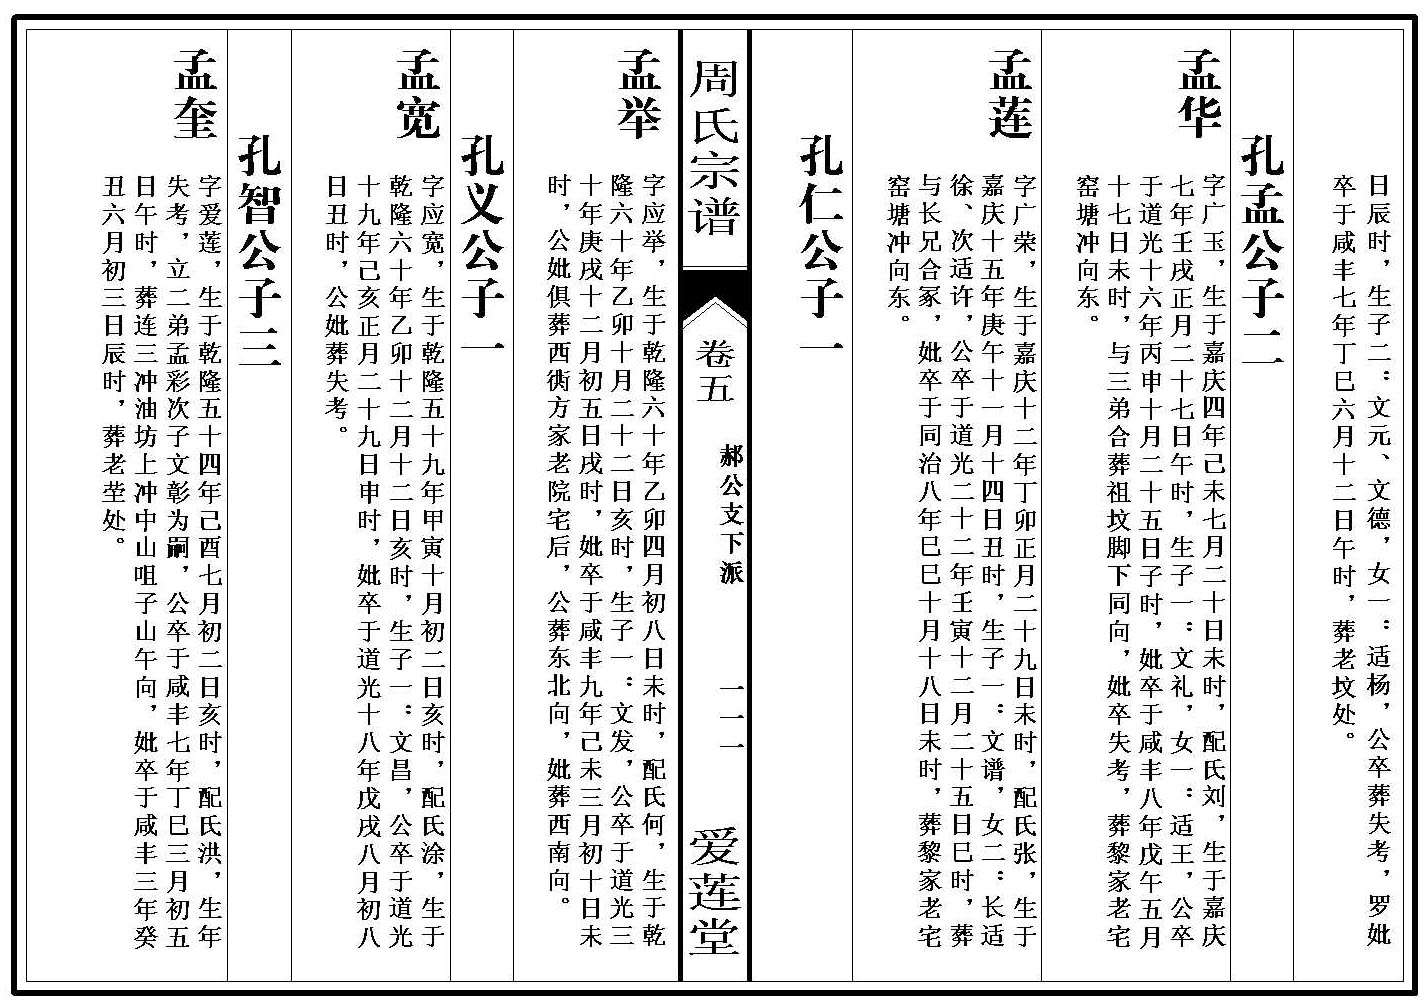 日辰时，生子二：文元、文德，女一：适杨，公卒葬失考，罗妣
卒于咸丰七年丁巳六月十二日午时，葬老坟处。
孔孟公子二
孟华
字广玉，生于嘉庆四年己未七月二十日未时，配氏刘，生于嘉庆
七年壬戌正月二十七日午时，生子一：文礼，女一：适王，公卒
于道光十六年丙申十月二十五日子时，妣卒于咸丰八年戊午五月
十七日未时，与三弟合葬祖坟脚下同向，妣卒失考，葬黎家老宅
窑塘冲向东。
孟莲
字广荣，生于嘉庆十二年丁卯正月二十九日未时，配氏张，生于
嘉庆十五年庚午十一月十四日丑时，生子一：文谱，女二：长适
徐、次适许，公卒于道光二十二年壬寅十二月二十五日巳时，葬
与长兄合冢，妣卒于同治八年巳巳十月十八日未时，葬黎家老宅
窑塘冲向东。
孔仁公子一
周氏宗谱
卷五
郝公支下派
一一一
爱莲堂
孟举
字应举，生于乾隆六十年乙卯四月初八日未时，配氏何，生于乾
隆六十年乙卯十月二十二日亥时，生子一：文发，公卒于道光三
十年庚戌十二月初五日戌时，妣卒于咸丰九年己未三月初十日未
时，公妣俱葬西衖方家老院宅后，公葬东北向，妣葬西南向。
孔义公子一
孟宽
字应宽，生于乾隆五十九年甲寅十月初二日亥时，配氏涂，生于
乾隆六十年乙卯十二月十二日亥时，生子一：文昌，公卒于道光
十九年己亥正月二十九日申时，妣卒于道光十八年戊戌八月初八
日丑时，公妣葬失考。
孔智公子三
孟奎
字爱莲，生于乾隆五十四年己酉七月初二日亥时，配氏洪，生年
失考，立二弟孟彩次子文彰为嗣，公卒于咸丰七年丁巳三月初五
日午时，葬连三冲油坊上冲中山咀子山午向，妣卒于咸丰三年癸
丑六月初三日辰时，葬老茔处。